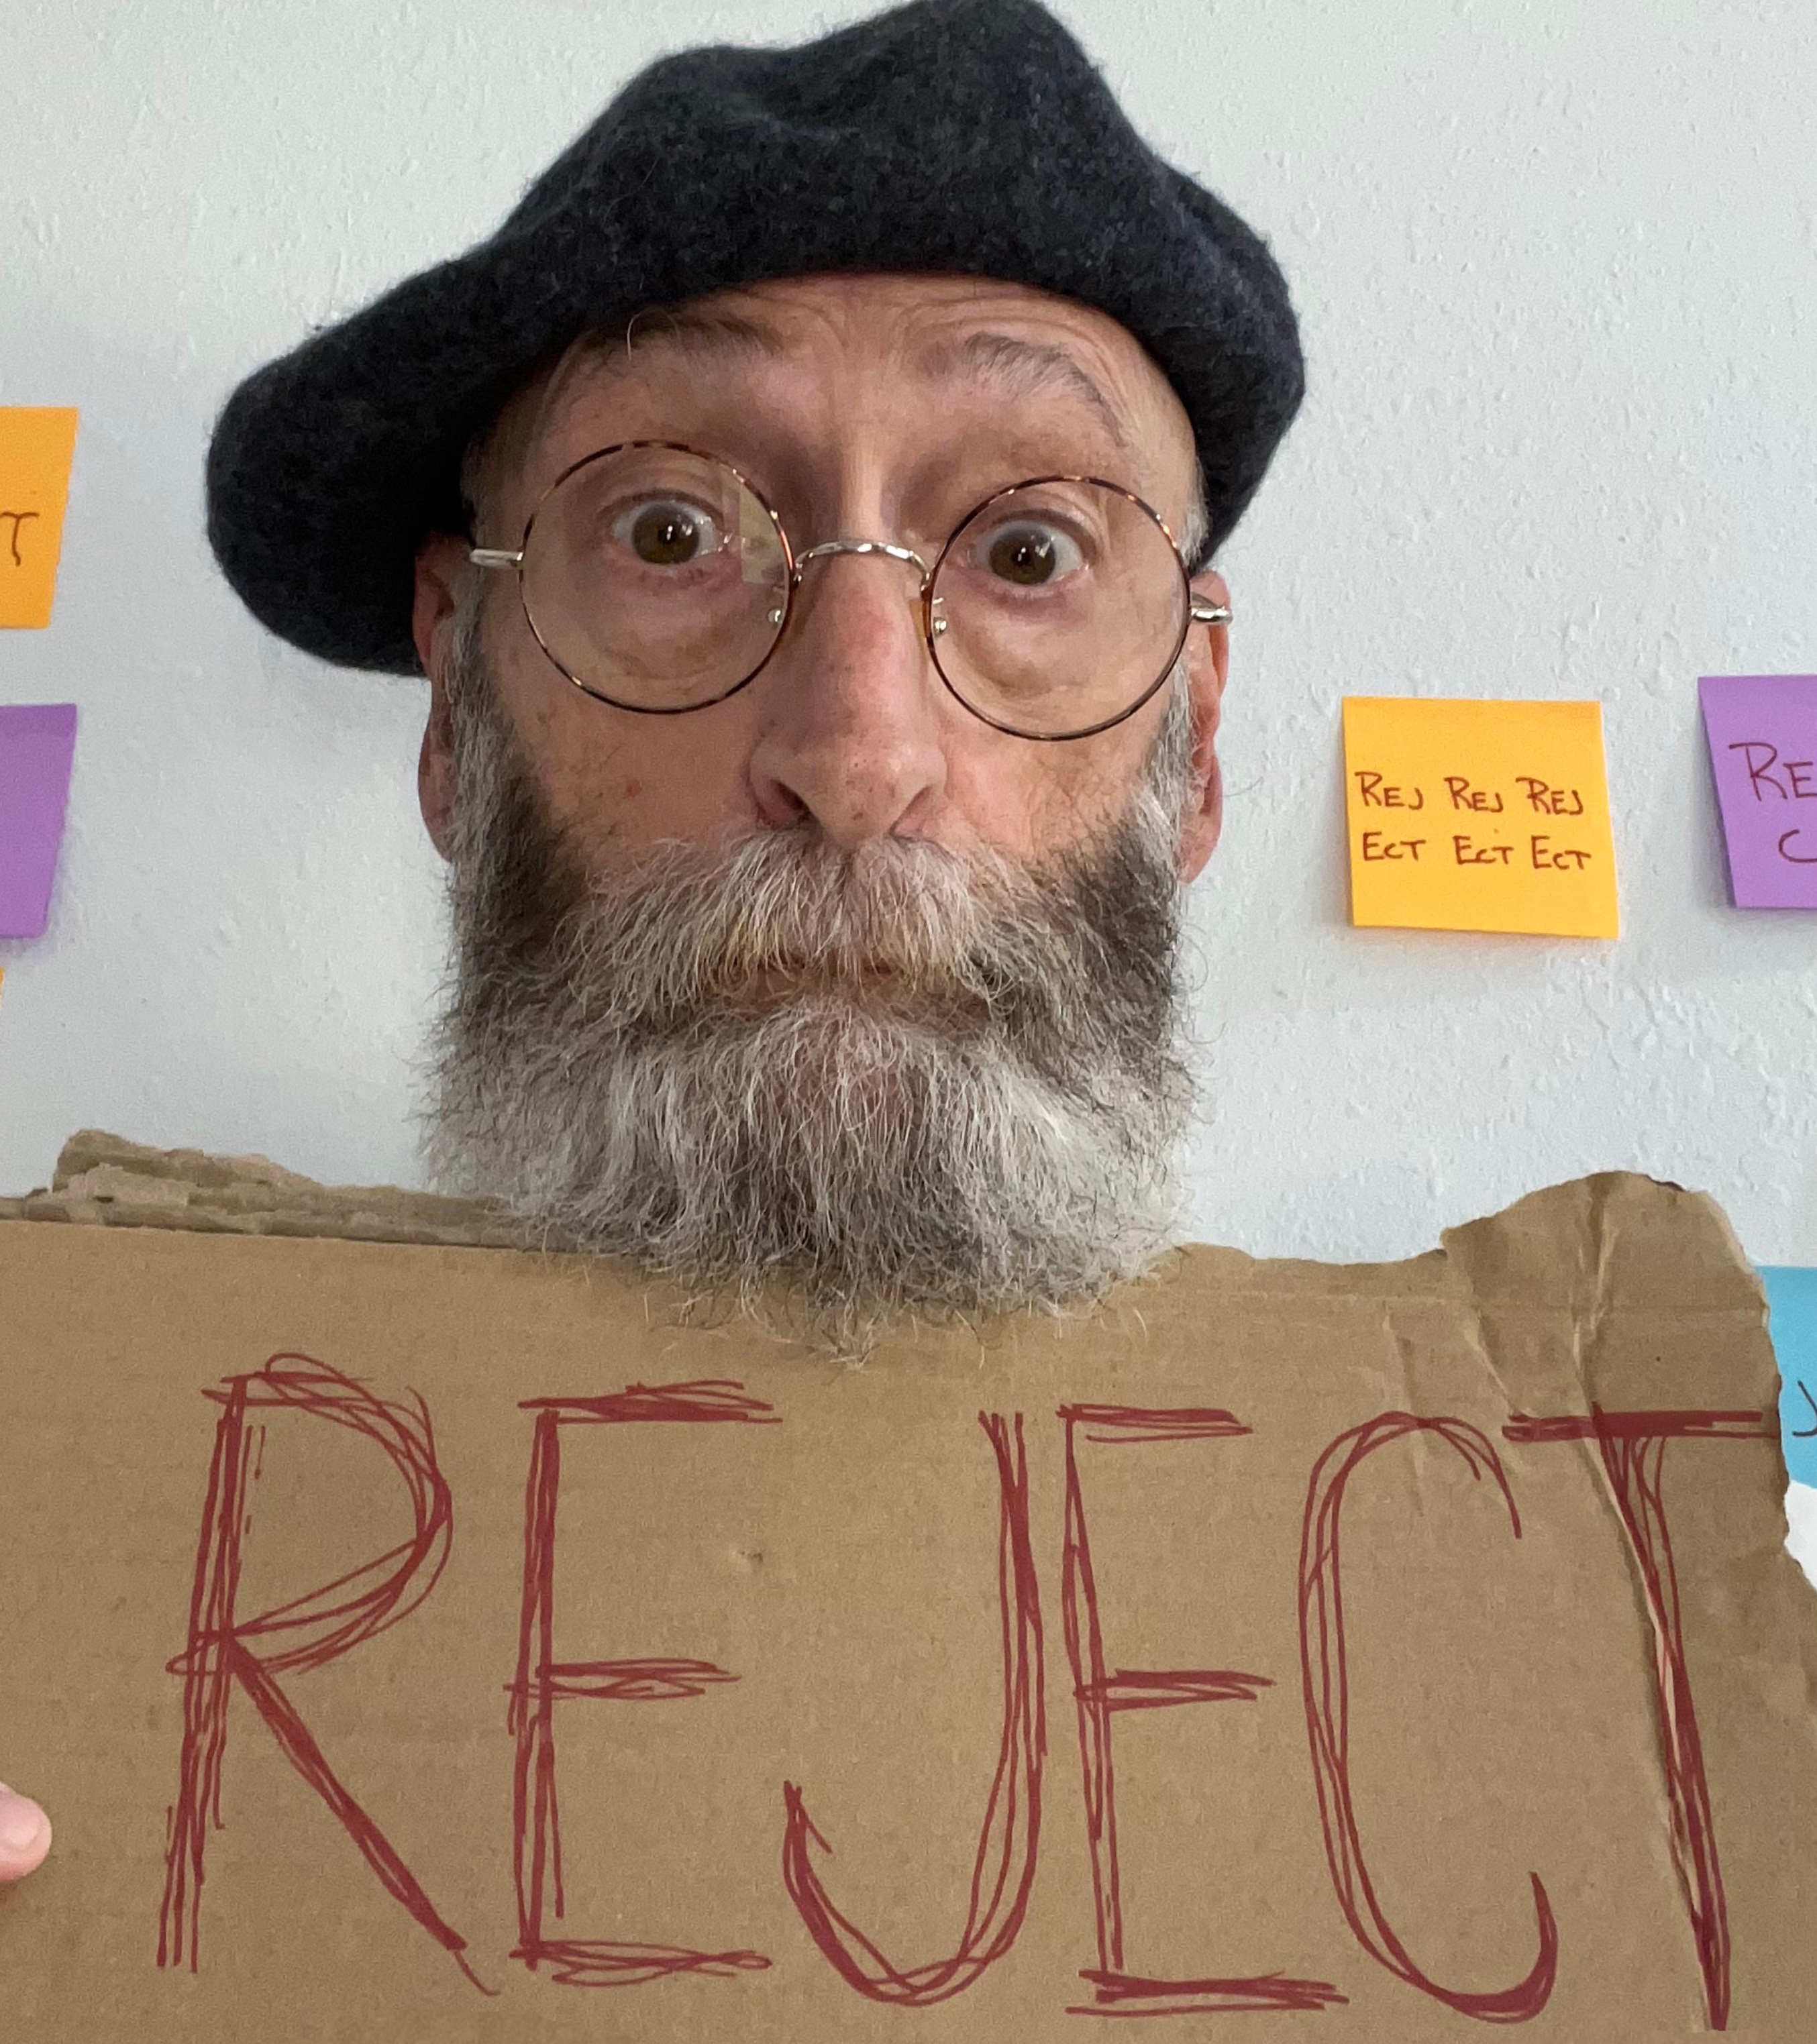 REJ REJ REJ
ECT ECT ECT
REJECT